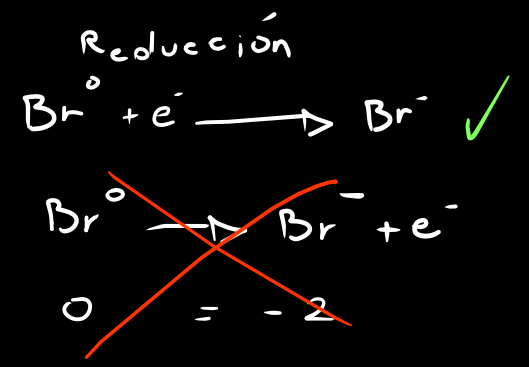 Reducción
Br⁰ + e⁻ → Br⁻ ✓
Br⁰ → Br⁻ + e⁻
0 = -2